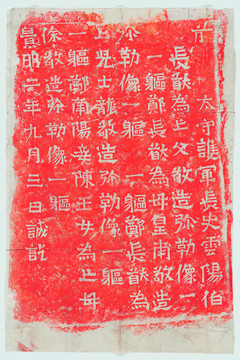 太守護軍長史雲陽伯
長猷為亡父敬造弥勒像一
軀鄭長猷為母皇甫敬造
弥勒像一軀 一軀鄭長猷為
亡兒士龍敬造弥勒像一軀
一軀鄭南陽妾陳玉女為亡母
徐敬造弥勒像一軀
景明二年九月三日誡訖